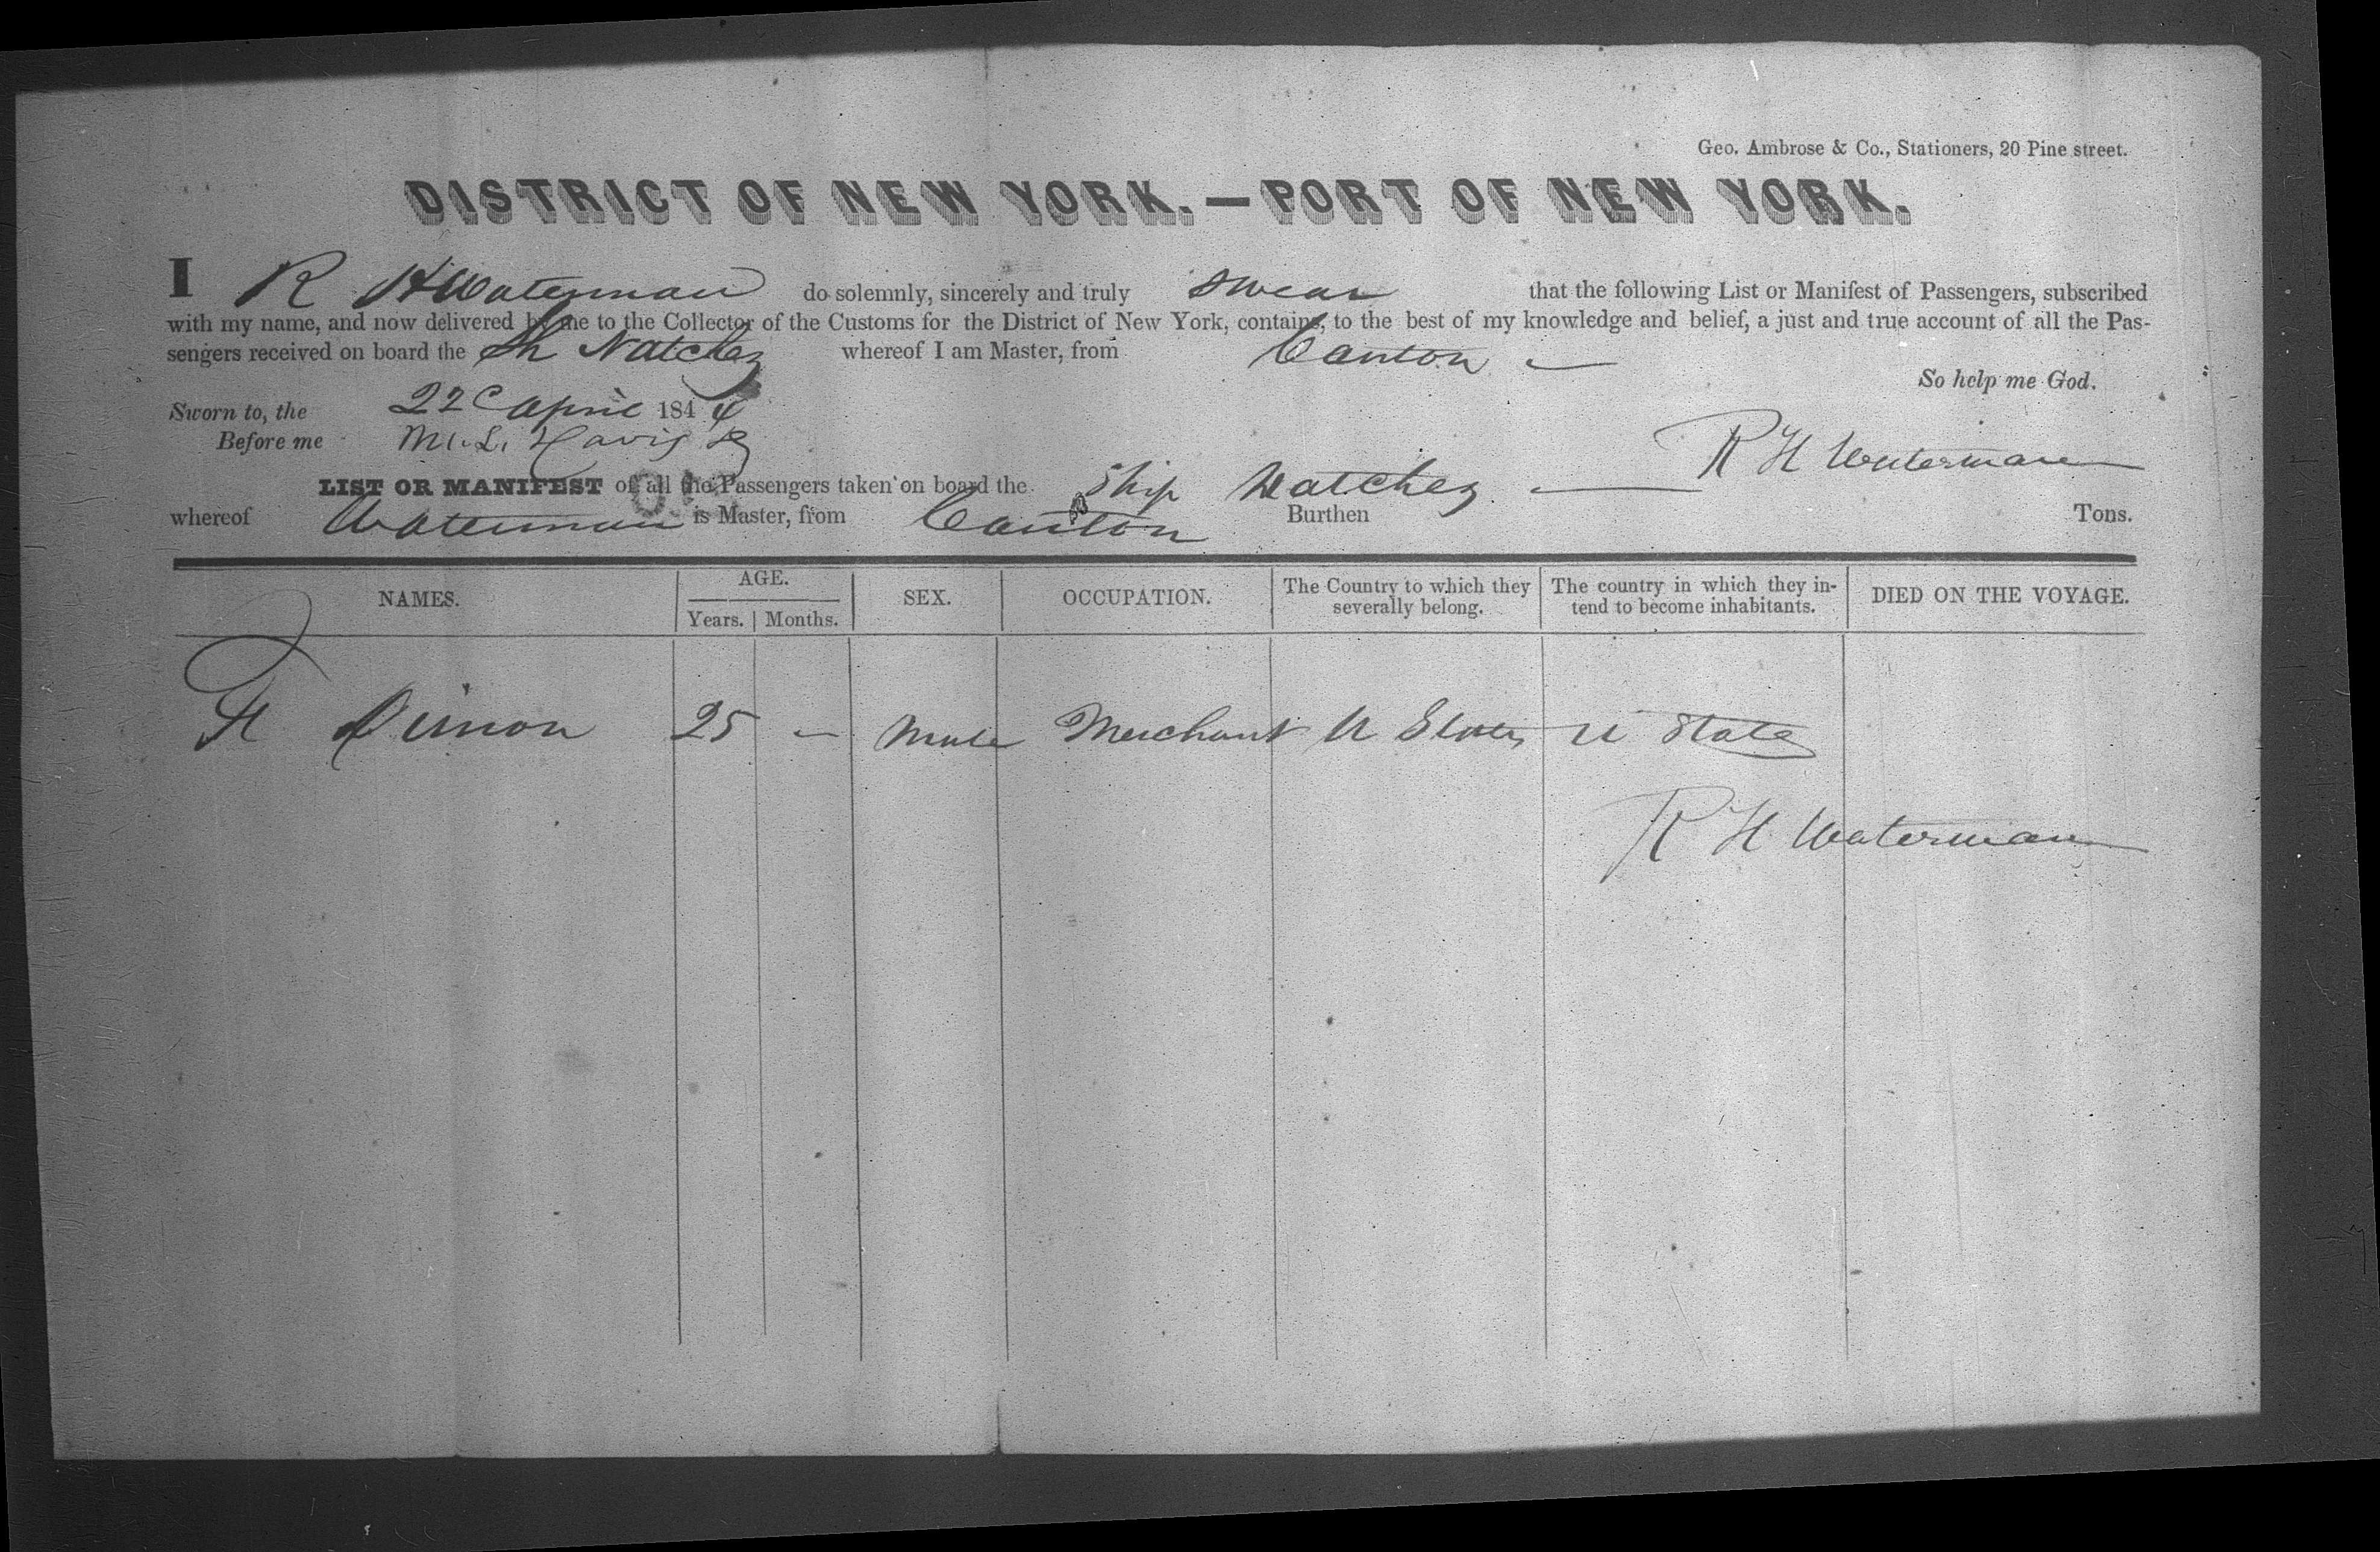 Geo. Ambrose & Co., Stationers, 20 Pine street.
DISTRICT OF NEW YORK.—PORT OF NEW YORK.
I R H Waterman do solemnly, sincerely and truly swear that the following List or Manifest of Passengers, subscribed
with my name, and now delivered by me to the Collector of the Customs for the District of New York, contains, to the best of my knowledge and belief, a just and true account of all the Pas-
sengers received on board the Sh Natchez whereof I am Master, from Canton —
So help me God.
Sworn to, the 22 April 1844
Before me M. L. Davis
R H Waterman
LIST OR MANIFEST of all the Passengers taken on board the Ship Natchez —
whereof Waterman is Master, from Canton Burthen Tons.
NAMES. AGE. SEX. OCCUPATION. The Country to which they severally belong. The country in which they in-tend to become inhabitants. DIED ON THE VOYAGE.
Years. Months.
Dimon 25 — Male Merchant U States U States
R H Waterman